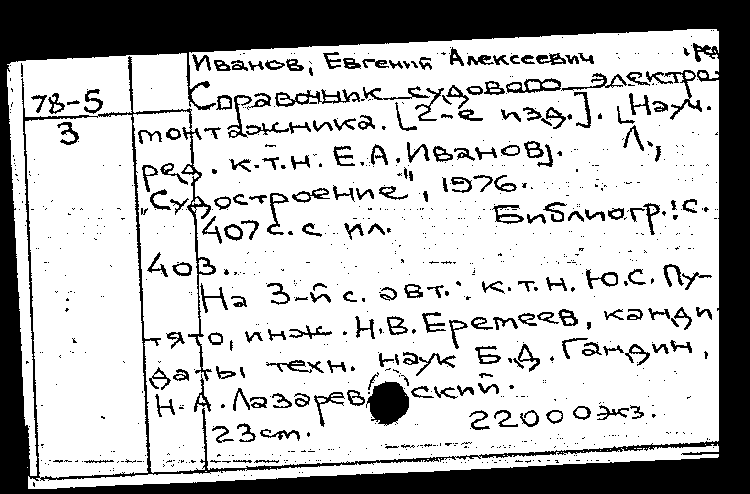 Иванов, Евгений Алексеевич ред
78-5 Справочник судового электро-
3 монтажника. [2-е изд.]. [Науч.
ред. к.т.н. Е.А.Иванов]. Л.,
"Судостроение", 1976.
407 с. с ил. Библиогр.: с.
403.
На 3-й с. авт.: к.т.н. Ю.С. Пу-
тято, инж. Н.В.Еремеев, канди-
даты техн. наук Б.Д. Гандин,
Н.А.Лазаревский.
23 см. 22000 экз.